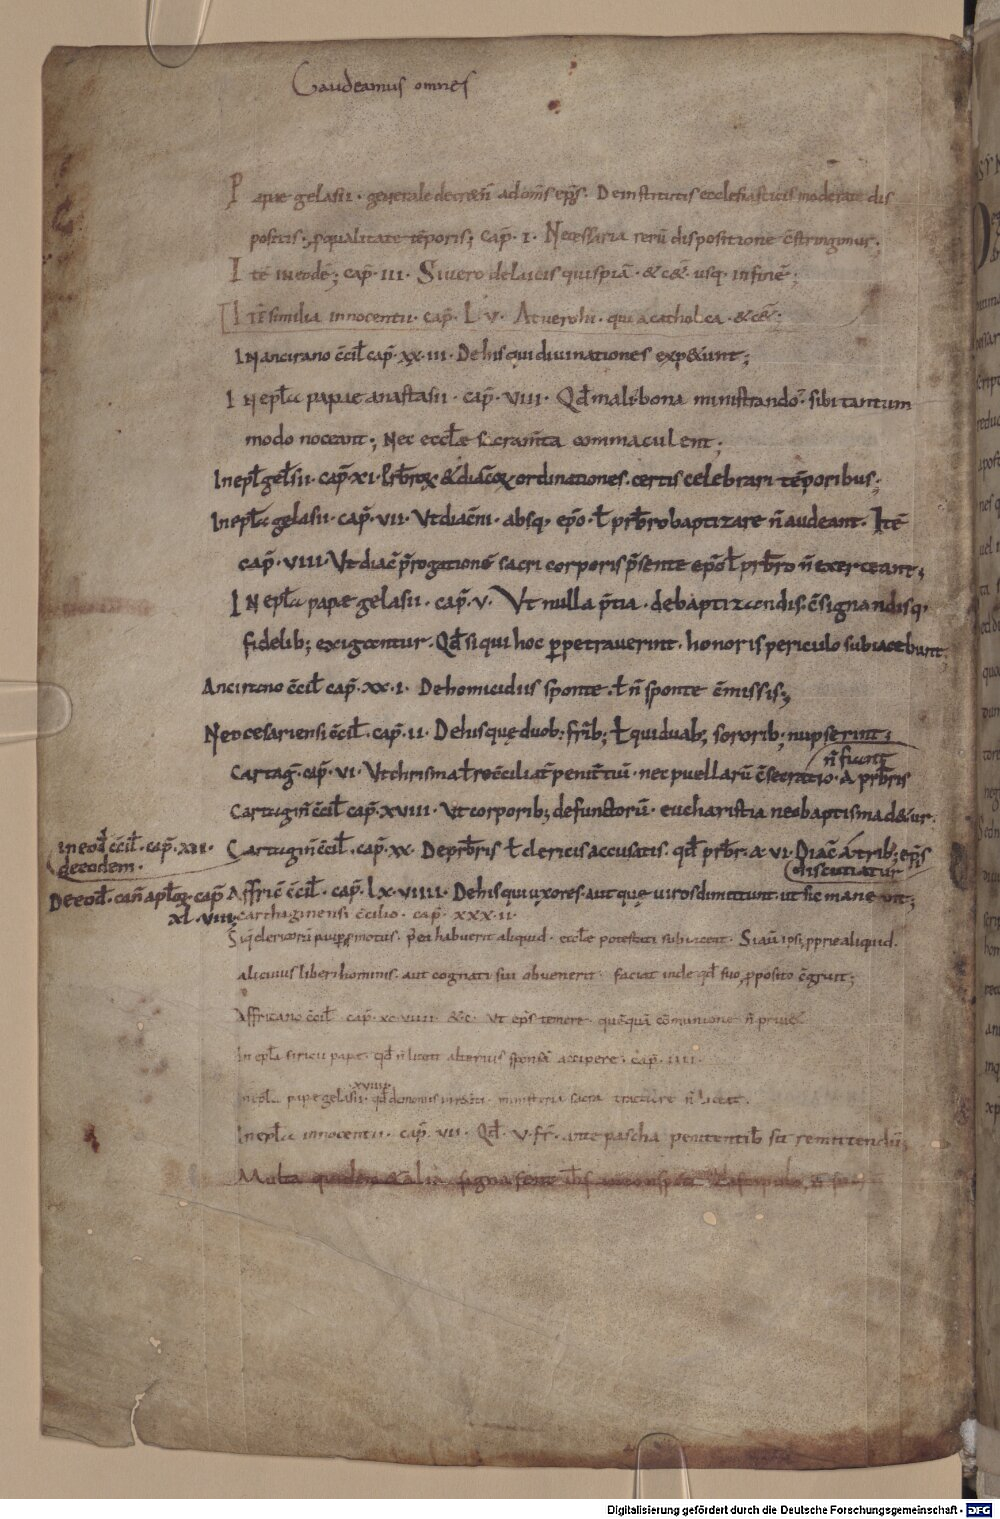 Gaudeamus omnes
Pape gelasii · generale decret̄ ad om̄s ep̄s · De institutis ecclesiasticis moderate dis
positis · p̱ qualitate tēporis ; cap̄ · I · Necessaria rerū dispositione c̄stringimur ;
Itē in eodē ; cap̄ · III · Si uero de laicis quispiā · & cet̄ · usq · in finē ;
Itē similia innocentii · cap̄ · L · V · At uero hi · qui a catholica · & cet̄ ·
IN ancirano c̄cil̄ cap̄ · XX · III · De his qui diuinationes expetunt ;
IN epl̄a papae anastasii · cap̄ · VIII · Qd̄ mali bona ministrando · sibi tantum
modo noceant ; Nec eccl̄ę sacram̄ta commaculent ;
In epl̄ gelasii · cap̄ · XI · Prb̄roꝝ & diac̄oꝝ ordinationes · certis celebrari tēporibus ;
In epl̄a gelasii · cap̄ · VII · Vt diac̄ni · absq · ep̄o · ł prb̄ro baptizare n̄ audeant · Itē
cap̄ · VIII · Vt diac̄ p̄rogationē sacri corporis p̄sente ep̄o ł prb̄ro n̄ exerceant ;
IN epl̄a papae gelasii · cap̄ · V · Vt nulla p̄tia · de baptizandis · c̄signandisq ·
fidelib ; exigantur · Qd̄ si qui hoc ꝑpetrauerint · honoris periculo subiacebunt
Ancirano c̄cil̄ cap̄ · XX · I · De homicidiis sponte · ł n̄ sponte c̄missis ;
Neocesariensi c̄cil̄ · cap̄ · II · De his quę duob : fr̄ib ; ł qui duab ; sororib ; nupserint ;
n̄ fiant
Cartag̅ · cap̄ · VI · Vt chrisma ł rec̄ciliat̄ penit̄tiū · nec puellarū c̄secratio · a prb̄ris
Cartagin̄ c̄cil̄ cap̄ · XVIII · Vt corporib ; defunctorū · eucharistia nec baptisma detur ·
in eod̄ c̄cil̄ · cap̄ · XII ·
de eodem ·
Cartagin̄ c̄cil̄ · cap̄ · XX · De prb̄ris ł clericis accusatis · qd̄ prb̄r · a VI · Diac̄ a trib ; ep̄is
discutiatur
De eod̄ · can̄ apl̄oꝝ · cap̄
XL · VIII ·
Affric̄ c̄cil̄ · cap̄ · LX · VIIII · De his qui uxores · aut quę uiros dimittunt · ut sic maneant ;
carthaginensi c̄cilio · cap̄ · XXX · II ·
alicuius liberi hominis · aut cognati sui obuenerit · faciat inde qd̄ suo ꝓposito c̄gruit ;
Affricano c̄cil̄ · cap̄ · XC · VIIII · &c · Vt ep̄s temere · quēquā cōmunione n̄ priuet
In epl̄a siricii pape · qd̄ n̄ liceat alterius sponsā accipere · cap̄ · IIII ·
XVIIII ·
In epl̄a pape gelasii · qd̄ demoniis ministeria sacra tractare n̄ liceat ·
In epl̄a innocentii · cap̄ · VII · Qd̄ · V · fr̄ · ante pascha penitentib̄ sit remittendū ;
Multa quidem & alia signa
Digitalisierung gefördert durch die Deutsche Forschungsgemeinschaft - DFG